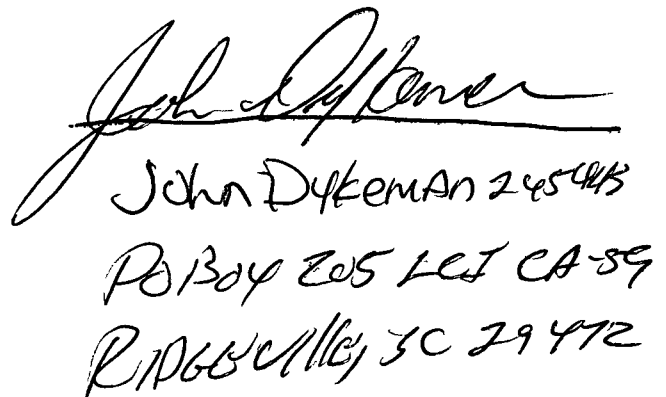 John Dykeman
John Dykeman
PO Box 205 LCI CA-59
Ridgeville, SC 29472